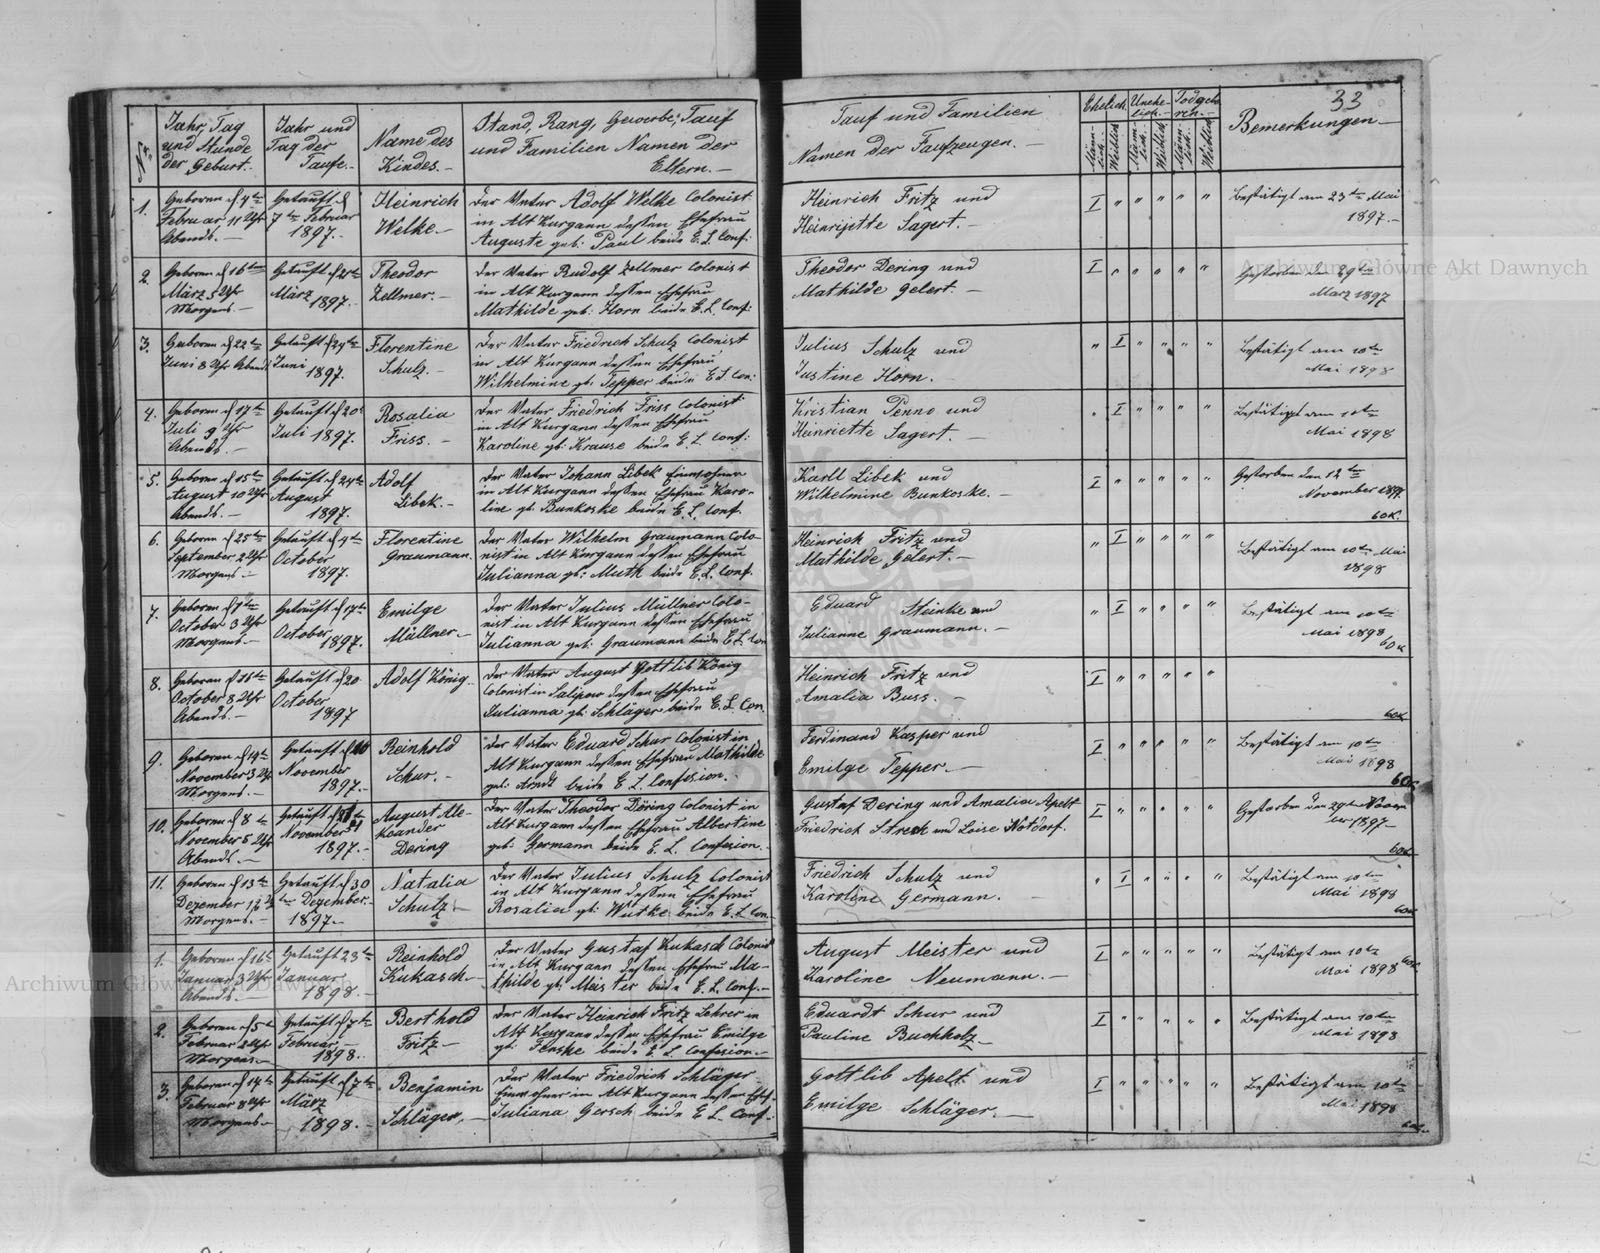 33
Nr.
Jahr, Tag
und Stunde
der Geburt.
Jahr und
Tag der
Taufe.
Name des
Kindes.
Stand, Rang, Gewerbe, Tauf
und Familien Namen der
Eltern.
Tauf und Familien
Namen der Taufzeugen.
Ehelich
Unehe-
lich.
Todgebo
ren.
Männ-
lich.
Weiblich
Männ-
lich.
Weiblich
Männ-
lich.
Weiblich
Bemerkungen
1.
Geboren d 4te
Februar 11 Uhr
Abends.
Getauft d
7te Februar
1897.
Heinrich
Welke.
Der Vater Adolf Welke Colonist
in Alt Kurgann dessen Ehefrau
Auguste geb: Paul beide E. L. Conf:
Heinrich Fritz und
Heinrijette Sagert.
I " " " " "
Bestätigt am 23te Mai
1897.
2.
Geboren d 16te
März 5 Uhr
Morgens.
Getauft d
März 1897.
Theodor
Zellmer.
Der Vater Rudolf Zellmer Colonist
in Alt Kurgann dessen Ehefrau
Mathilde geb: Horn beide E. L. Conf:
Theodor Dering und
Mathilde Gelert.
I " " " " "
Gestorben den 29te
März 1897
3.
Geboren d 22te
Juni 8 Uhr Abends
Getauft d 29te
Juni 1897.
Florentine
Schulz.
Der Vater Friedrich Schulz Colonist
in Alt Kurgann dessen Ehefrau
Wilhelmine gb: Tepper beide E. L. Con:
Julius Schulz und
Justine Horn.
" I " " " "
Bestätigt am 10te
Mai 1898
4.
Geboren d 17te
Juli 9 Uhr
Abends.
Getauft d 20
Juli 1897.
Rosalia
Friss.
Der Vater Friedrich Friss Colonist
in Alt Kurgann dessen Ehefrau
Karoline gb: Krause beide E. L. Conf:
Kristian Penno und
Heinriette Sagert.
" I " " " "
Bestätigt am 10te
Mai 1898
5.
Geboren d 15te
August 10 Uhr
Abends.
Getauft d 24te
August
1897.
Adolf
Libek.
Der Vater Johann Libek Einwohner
in Alt Kurgann dessen Ehefrau Karo-
line gb: Bunkoske beide E. L. Conf.
Karll Libek und
Wilhelmine Bunkoske.
I " " " " "
Gestorben den 12te
November 1897.
60K.
6.
Geboren d 25te
September 2 Uhr
Morgens.
Getauft d 4te
October
1897.
Florentine
Graumann.
Der Vater Wilhelm Graumann Colo-
nist in Alt Kurgann dessen Ehefrau
Julianna gb: Muth beide E. L. Conf.
Heinrich Fritz und
Mathilde Gelert.
" I " " " "
Bestätigt am 10te Mai
1898
7.
Geboren d 7te
October 3 Uhr
Morgens.
Getauft d 17te
October
1897.
Emilge
Müllner.
Der Vater Julius Müllner Colo-
nist in Alt Kurgann dessen Ehefrau
Julianna geb: Graumann beide E. L. Con
Eduard Steinke und
Julianne Graumann.
" I " " " "
Bestätigt am 10te
Mai 1898
60K
8.
Geboren d 16te
October 8 Uhr
Abends.
Getauft d 20
October
1897
Adolf König.
Der Vater August Gottlib König
Colonist in Salipow dessen Ehefrau
Julianna gb: Schläger beide E. L. Con.
Heinrich Fritz und
Amalia Buss.
I " " " " "
60K
9.
Geboren d 14te
November 3 Uhr
Morgens.
Getauft d
November
1897.
Reinhold
Schur.
Der Vater Eduard Schur Colonist in
Alt Kurgann dessen Ehefrau Mathilde
geb: Arndt beide E. L. Confesion.
Ferdinand Kasper und
Emilge Tepper.
I " " " " "
Bestätigt am 10te
Mai 1898
60K
10.
Geboren d 8te
November 5 Uhr
Abends.
Getauft d
November
1897.
August Ale-
kcander
Dering
Der Vater Theodor Döring Colonist in
Alt Kurgann dessen Ehefrau Albertine
geb: Germann beide E. L. Confesion.
Gustaf Dering und Amalia Apelt
Friedrich Strech und Loise Notdorf.
I " " " " "
Gestorben den
1897
60K
11.
Geboren d 13te
Dezember 12 Uhr
Morgens.
Getauft d 30
te Dezember.
1897.
Natalia
Schulz
Der Vater Julius Schulz Colonist
in Alt Kurgann dessen Ehefrau
Rosalia gb: Wutke beide E. L. Con.
Friedrich Schulz und
Karoline Germann.
" I " " " "
Bestätigt am 10te
Mai 1898
60K
1.
Geboren d 16te
Januar 3 Uhr
Abends.
Getauft 23te
Januar
1898.
Reinhold
Kukasch.
Der Vater Gustaf Kukasch Colonist
in Alt Kurgann dessen Ehefrau Ma-
thilde gb: Meister beide E. L. Conf.
August Meister und
Karoline Neumann.
I " " " " "
Bestätigt am 10te
Mai 1898 60K
2.
Geboren d 5te
Februar 2 Uhr
Morgens.
Getauft d 7te
Februar.
1898.
Berthold
Fritz
Der Vater Heinrich Fritz Lehrer in
Alt Kurgann dessen Ehefrau Emilge
gb: Fenske beide E. L. Confesion.
Eduardt Schur und
Pauline Buchholz
I " " " " "
Bestätigt am 10te
Mai 1898
3.
Geboren d 14te
Februar 8 Uhr
Morgens.
Getauft d 7te
März
1898.
Benjamin
Schläger.
Der Vater Friedrich Schläger
Einwohner in Alt Kurgann dessen Ehef.
Juliana Gersch beide E. L. Conf.
Gottlib Apelt und
Emilge Schläger.
I " " " " "
Bestätigt am 10te
Mai 1898
60K.
Archiwum Główne Akt Dawnych
Archiwum Główne Akt Dawnych